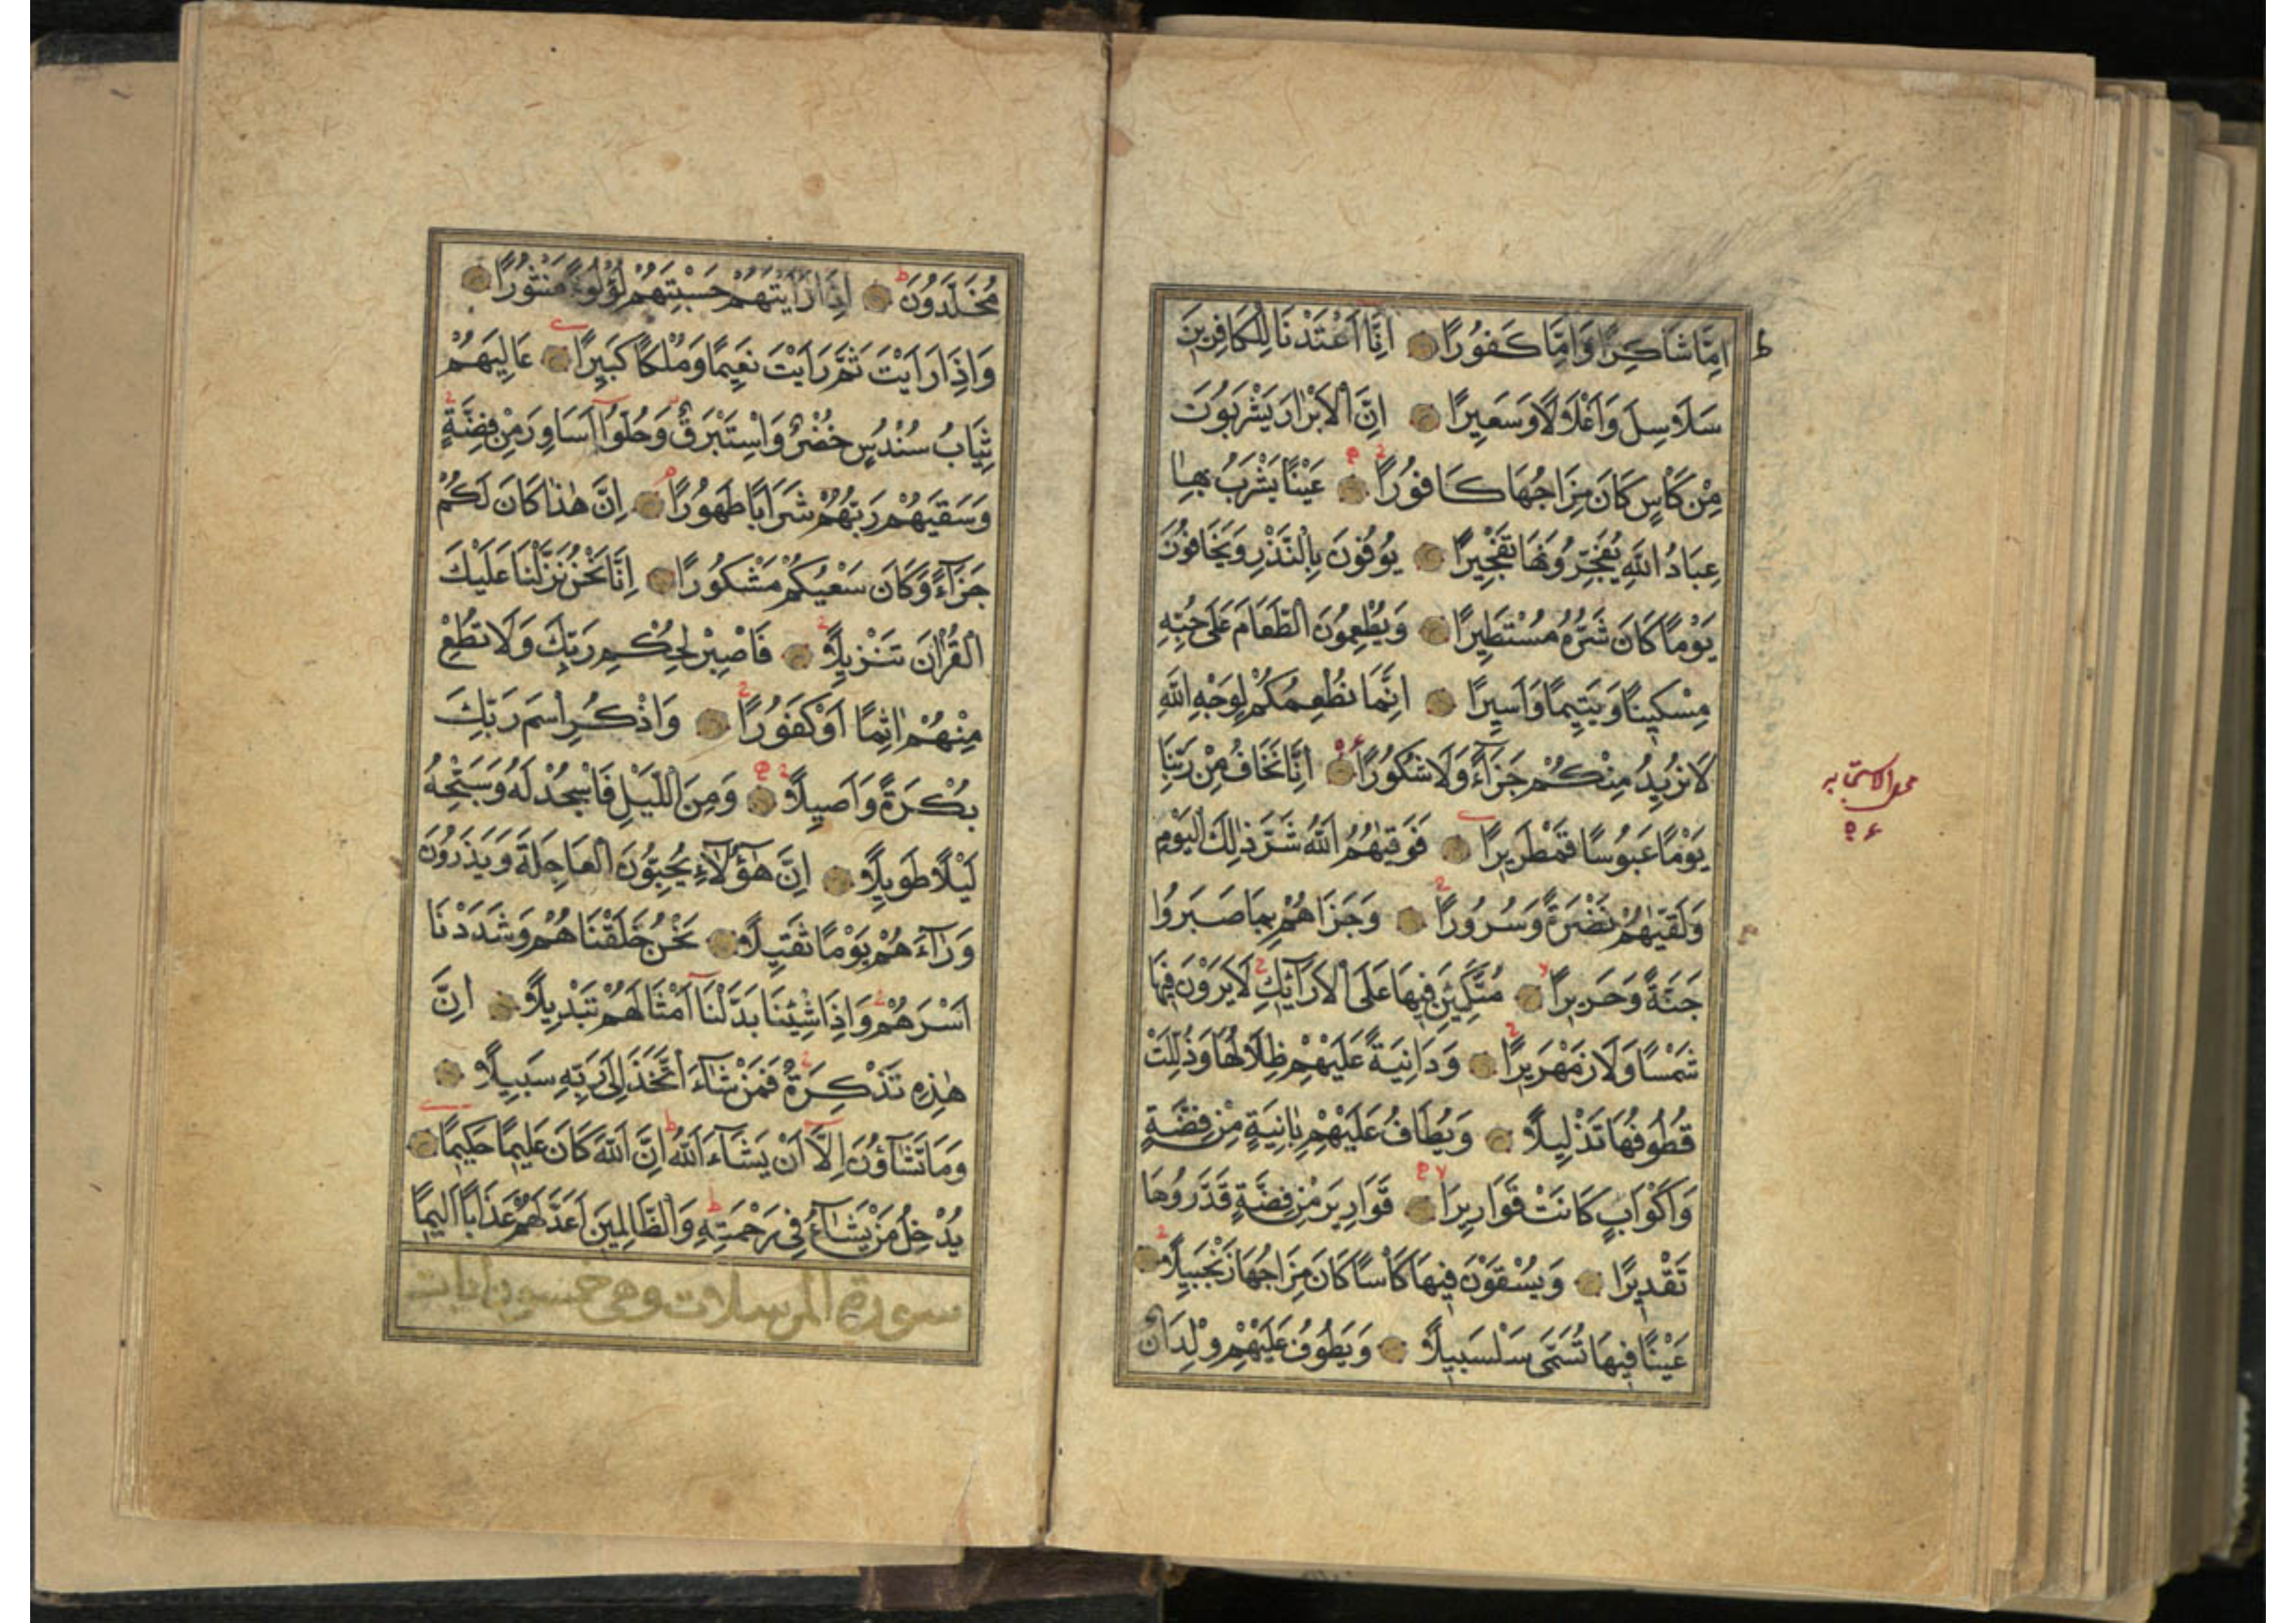 اِمَّا شَاكِرًا وَاِمَّا كَفُورًا اِنَّا اَعْتَدْنَا لِلْكَافِرِينَ
سَلَاسِلَ وَاَغْلَالًا وَسَعِيرًا اِنَّ الْاَبْرَارَ يَشْرَبُونَ
مِنْ كَاْسٍ كَانَ مِزَاجُهَا كَافُورًا عَيْنًا يَشْرَبُ بِهَا
عِبَادُ اللّٰهِ يُفَجِّرُونَهَا تَفْجِيرًا يُوفُونَ بِالنَّذْرِ وَيَخَافُونَ
يَوْمًا كَانَ شَرُّهُ مُسْتَطِيرًا وَيُطْعِمُونَ الطَّعَامَ عَلَى حُبِّهِ
مِسْكِينًا وَيَتِيمًا وَاَسِيرًا اِنَّمَا نُطْعِمُكُمْ لِوَجْهِ اللّٰهِ
لَا نُرِيدُ مِنْكُمْ جَزَآءً وَلَا شُكُورًا اِنَّا نَخَافُ مِنْ رَبِّنَا
يَوْمًا عَبُوسًا قَمْطَرِيرًا فَوَقٰيهُمُ اللّٰهُ شَرَّ ذٰلِكَ الْيَوْمِ
وَلَقّٰيهُمْ نَضْرَةً وَسُرُورًا وَجَزَاهُمْ بِمَا صَبَرُوا
جَنَّةً وَحَرِيرًا مُتَّكِئِينَ فِيهَا عَلَى الْاَرَآئِكِ لَا يَرَوْنَ فِيهَا
شَمْسًا وَلَا زَمْهَرِيرًا وَدَانِيَةً عَلَيْهِمْ ظِلَالُهَا وَذُلِّلَتْ
قُطُوفُهَا تَذْلِيلًا وَيُطَافُ عَلَيْهِمْ بِاٰنِيَةٍ مِنْ فِضَّةٍ
وَاَكْوَابٍ كَانَتْ قَوَارِيرَا قَوَارِيرَ مِنْ فِضَّةٍ قَدَّرُوهَا
تَقْدِيرًا وَيُسْقَوْنَ فِيهَا كَاْسًا كَانَ مِزَاجُهَا زَنْجَبِيلًا
عَيْنًا فِيهَا تُسَمَّى سَلْسَبِيلًا وَيَطُوفُ عَلَيْهِمْ وِلْدَانٌ
مُخَلَّدُونَ اِذَا رَاَيْتَهُمْ حَسِبْتَهُمْ لُؤْلُؤًا مَنْثُورًا
وَاِذَا رَاَيْتَ ثَمَّ رَاَيْتَ نَعِيمًا وَمُلْكًا كَبِيرًا عَالِيَهُمْ
ثِيَابُ سُنْدُسٍ خُضْرٌ وَاِسْتَبْرَقٌ وَحُلُّوٓا اَسَاوِرَ مِنْ فِضَّةٍ
وَسَقٰيهُمْ رَبُّهُمْ شَرَابًا طَهُورًا اِنَّ هٰذَا كَانَ لَكُمْ
جَزَآءً وَكَانَ سَعْيُكُمْ مَشْكُورًا اِنَّا نَحْنُ نَزَّلْنَا عَلَيْكَ
الْقُرْاٰنَ تَنْزِيلًا فَاصْبِرْ لِحُكْمِ رَبِّكَ وَلَا تُطِعْ
مِنْهُمْ اٰثِمًا اَوْ كَفُورًا وَاذْكُرِ اسْمَ رَبِّكَ
بُكْرَةً وَاَصِيلًا وَمِنَ اللَّيْلِ فَاسْجُدْ لَهُ وَسَبِّحْهُ
لَيْلًا طَوِيلًا اِنَّ هٰٓؤُلَآءِ يُحِبُّونَ الْعَاجِلَةَ وَيَذَرُونَ
وَرَآءَهُمْ يَوْمًا ثَقِيلًا نَحْنُ خَلَقْنَاهُمْ وَشَدَدْنَا
اَسْرَهُمْ وَاِذَا شِئْنَا بَدَّلْنَآ اَمْثَالَهُمْ تَبْدِيلًا اِنَّ
هٰذِهِ تَذْكِرَةٌ فَمَنْ شَآءَ اتَّخَذَ اِلَى رَبِّهِ سَبِيلًا
وَمَا تَشَآؤُنَ اِلَّآ اَنْ يَشَآءَ اللّٰهُ اِنَّ اللّٰهَ كَانَ عَلِيمًا حَكِيمًا
يُدْخِلُ مَنْ يَشَآءُ فِى رَحْمَتِهِ وَالظَّالِمِينَ اَعَدَّ لَهُمْ عَذَابًا اَلِيمًا
سورة المرسلات وهى خمسون ايات